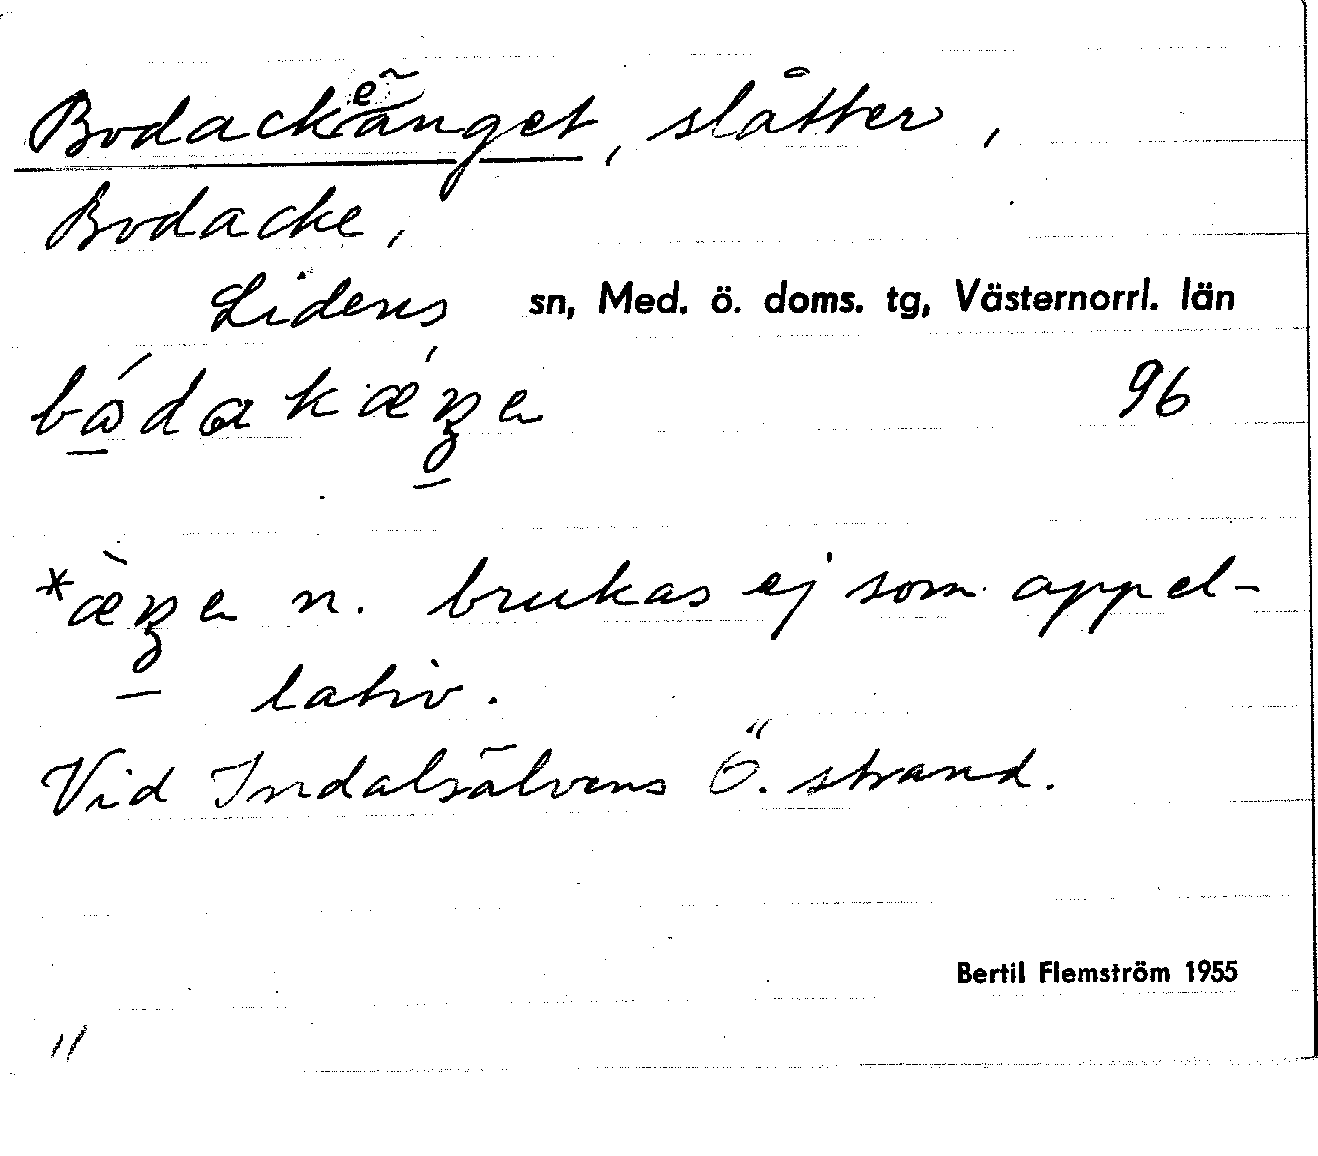 Bodackeänget, slåtter,
Bodacke,
Lidens sn, Med. ö. doms. tg, Västernorrl. län
96
n. brukas ej som appel-
lativ.
Vid Indalsälvens Ö. strand.
Bertil Flemström 1955